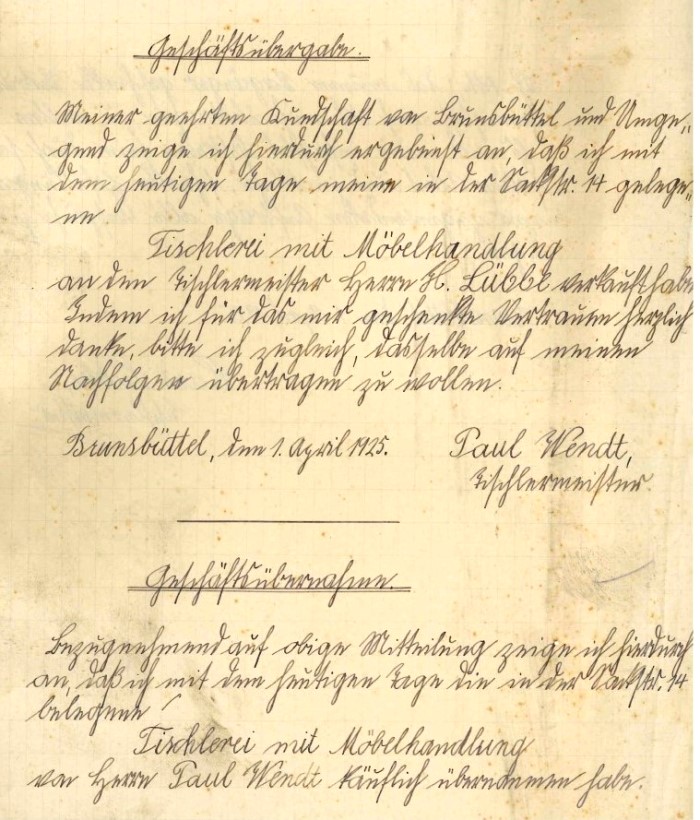 Geschäftsübergabe.
Meiner geehrten Kundschaft von Brunsbüttel und Umge-
gend zeige ich hierdurch ergebenst an, daß ich mit
dem heutigen Tage meine in der Sackstr. 14 gelege-
ne
Tischlerei mit Möbelhandlung
an den Tischlermeister Herrn H. Lübbe verkauft habe
Indem ich für das mir geschenkte Vertrauen herzlich
danke, bitte ich zugleich, dasselbe auf meinen
Nachfolger übertragen zu wollen.
Brunsbüttel, den 1. April 1925. Paul Wendt,
Tischlermeister.
Geschäftsübernahme.
Bezugnehmend auf obige Mitteilung zeige ich hierdurch
an, daß ich mit dem heutigen Tage die in der Sackstr. 14
belegene
Tischlerei mit Möbelhandlung
von Herrn Paul Wendt käuflich übernommen habe.